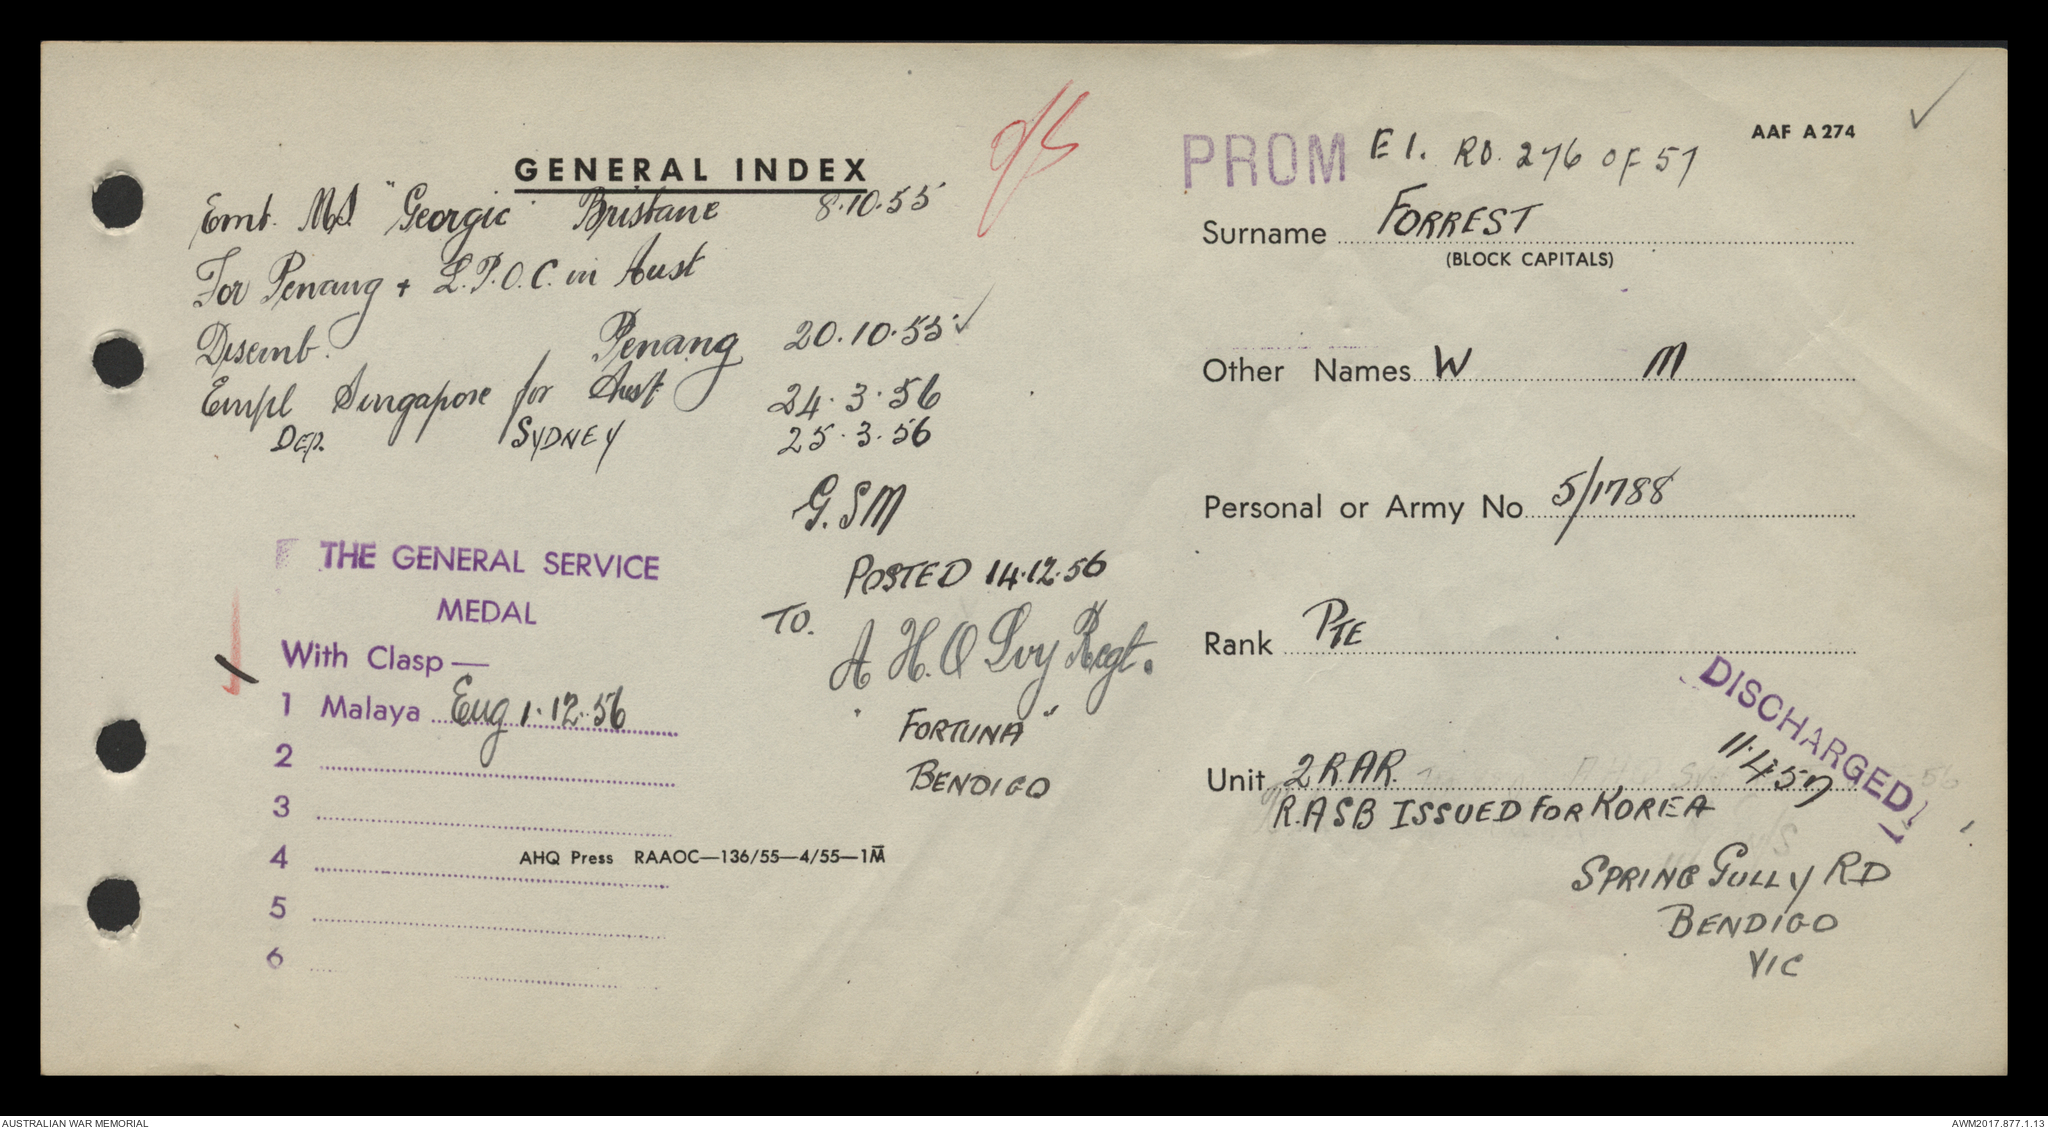 GENERAL INDEX
Emb. MS. "Georgic" Brisbane 8.10.55
For Penang + L.P.O.C. in Aust
Disemb. Penang 20.10.55
Empl Singapore for Aust 24.3.56
DEP. SYDNEY 25.3.56
G.SM
POSTED 14.12.56
TO.
A H.Q Svy Regt.
"FORTUNA"
BENDIGO
THE GENERAL SERVICE
MEDAL
With Clasp —
1 Malaya Eng 1.12.56
2
3
4
5
6
AHQ Press RAAOC—136/55—4/55—1M
AAF A 274
PROM E 1. RO. 276 OF 57
Surname FORREST
(BLOCK CAPITALS)
Other Names W M
Personal or Army No 5/1788
Rank PTE
DISCHARGED
11.4.57
Unit 2 R.A.R.
R.A S B ISSUED FOR KOREA
SPRING GULLY RD
BENDIGO
VIC
AUSTRALIAN WAR MEMORIAL
AWM2017.877.1.13